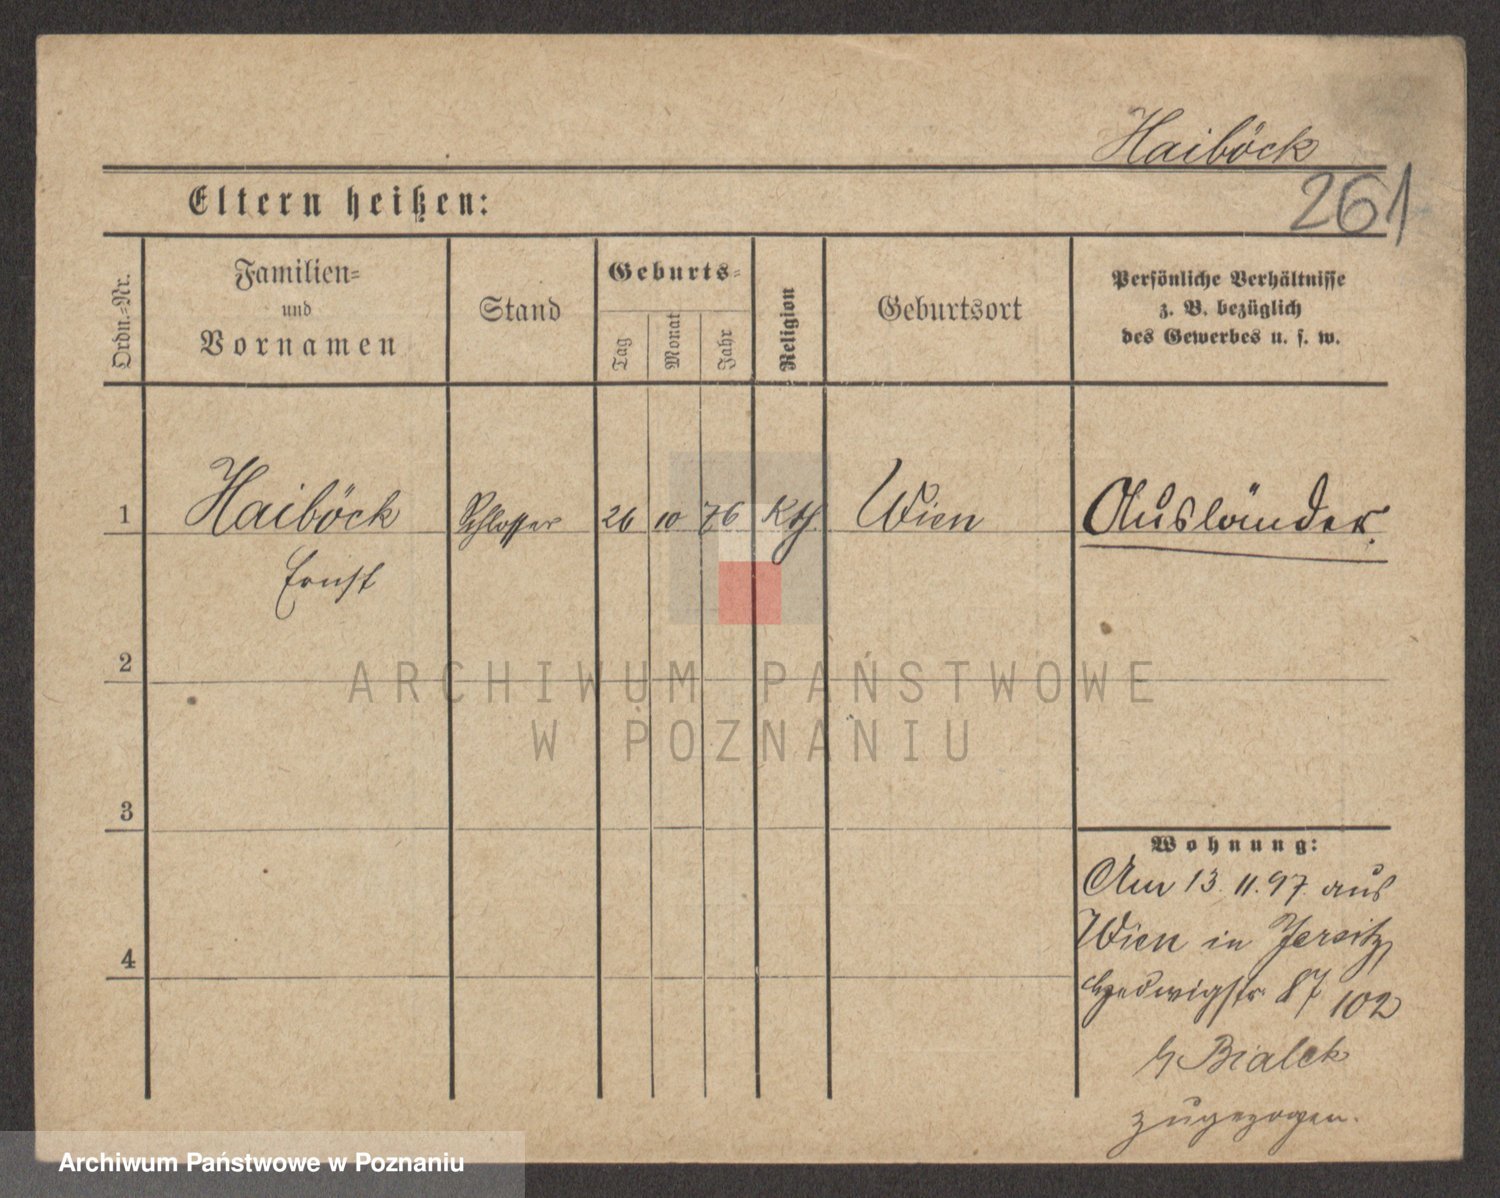 Haiböck
261
Eltern heißen:
Ordn.-Nr.
Familien-
und
Vornamen
Stand
Geburts-
Tag
Monat
Jahr
Religion
Geburtsort
Persönliche Verhältnisse
z. B. bezüglich
des Gewerbes u. s. w.
1
Haiböck Schlosser 26 10 76 Kth Wien Ausländer.
Ernst
2
ARCHIWUM PAŃSTWOWE
W POZNANIU
3
Wohnung:
Am 13.11.97. aus
Wien in Jersitz,
4
Hedwigstr. 87 102
b/ Bialek
zugezogen.
Archiwum Państwowe w Poznaniu